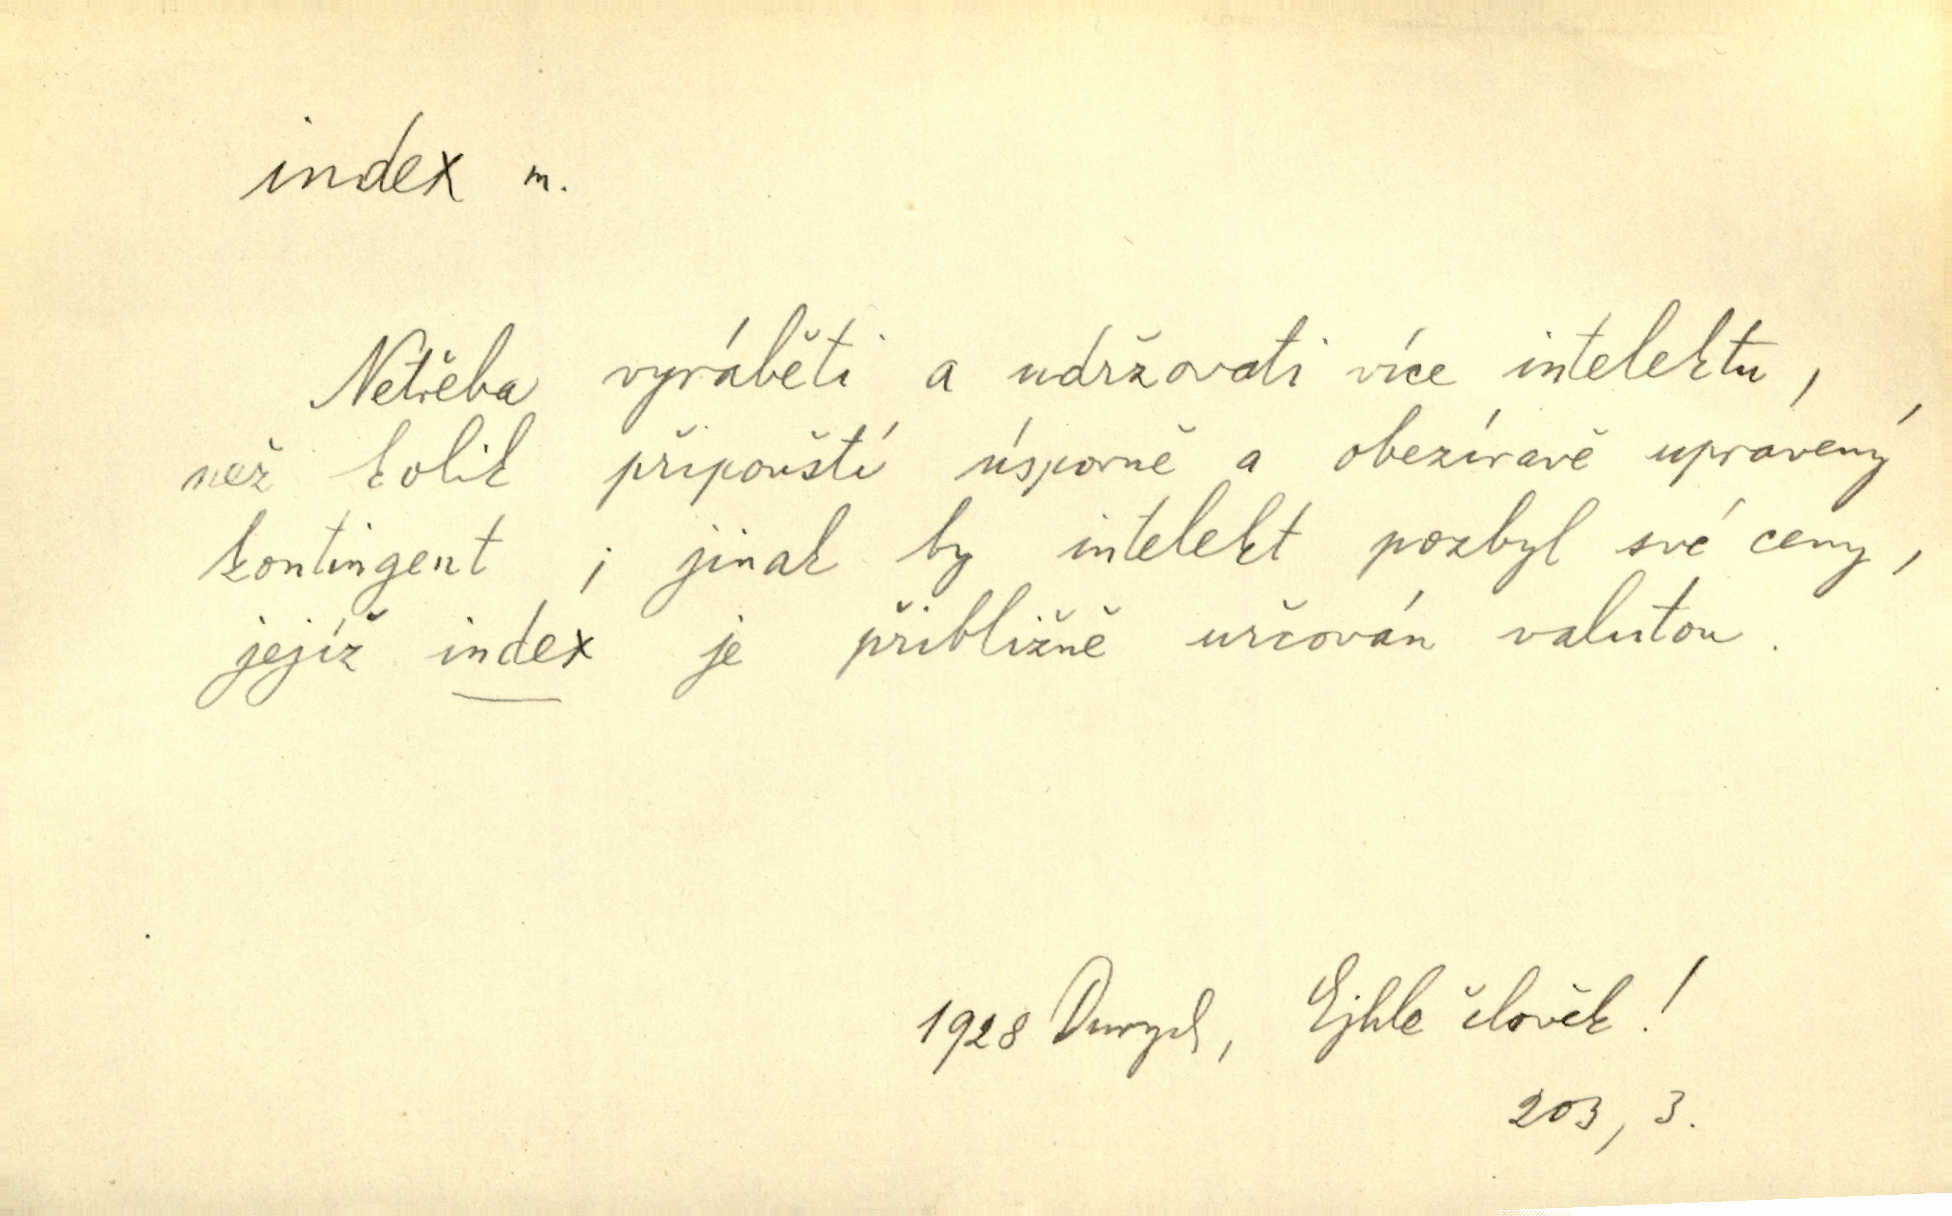 index m.
Netřeba vyráběti a udržovati více intelektu,
než kolik připouští úsporně a obezíravě upravený
kontingent ; jinak by intelekt pozbyl své ceny,
jejíž index je přibližně určován valutou.
1928 Durych, Ejhle člověk!
203, 3.